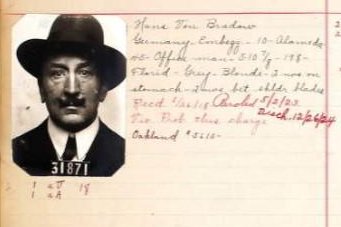 Hans Von Bradow
Germany. Embezz - 10 - Alameda
45 - Office man - 5-10 7/8 - 198 -
Florid - Grey - Blonde - 2 mos on
stomach - 2 mos bet shldr blades
Recd 1/26/18 Paroled 5/2/23
Vio. Prob. this charge Disch. 12/26/24
Oakland # 5610 -
31871
1 18
1